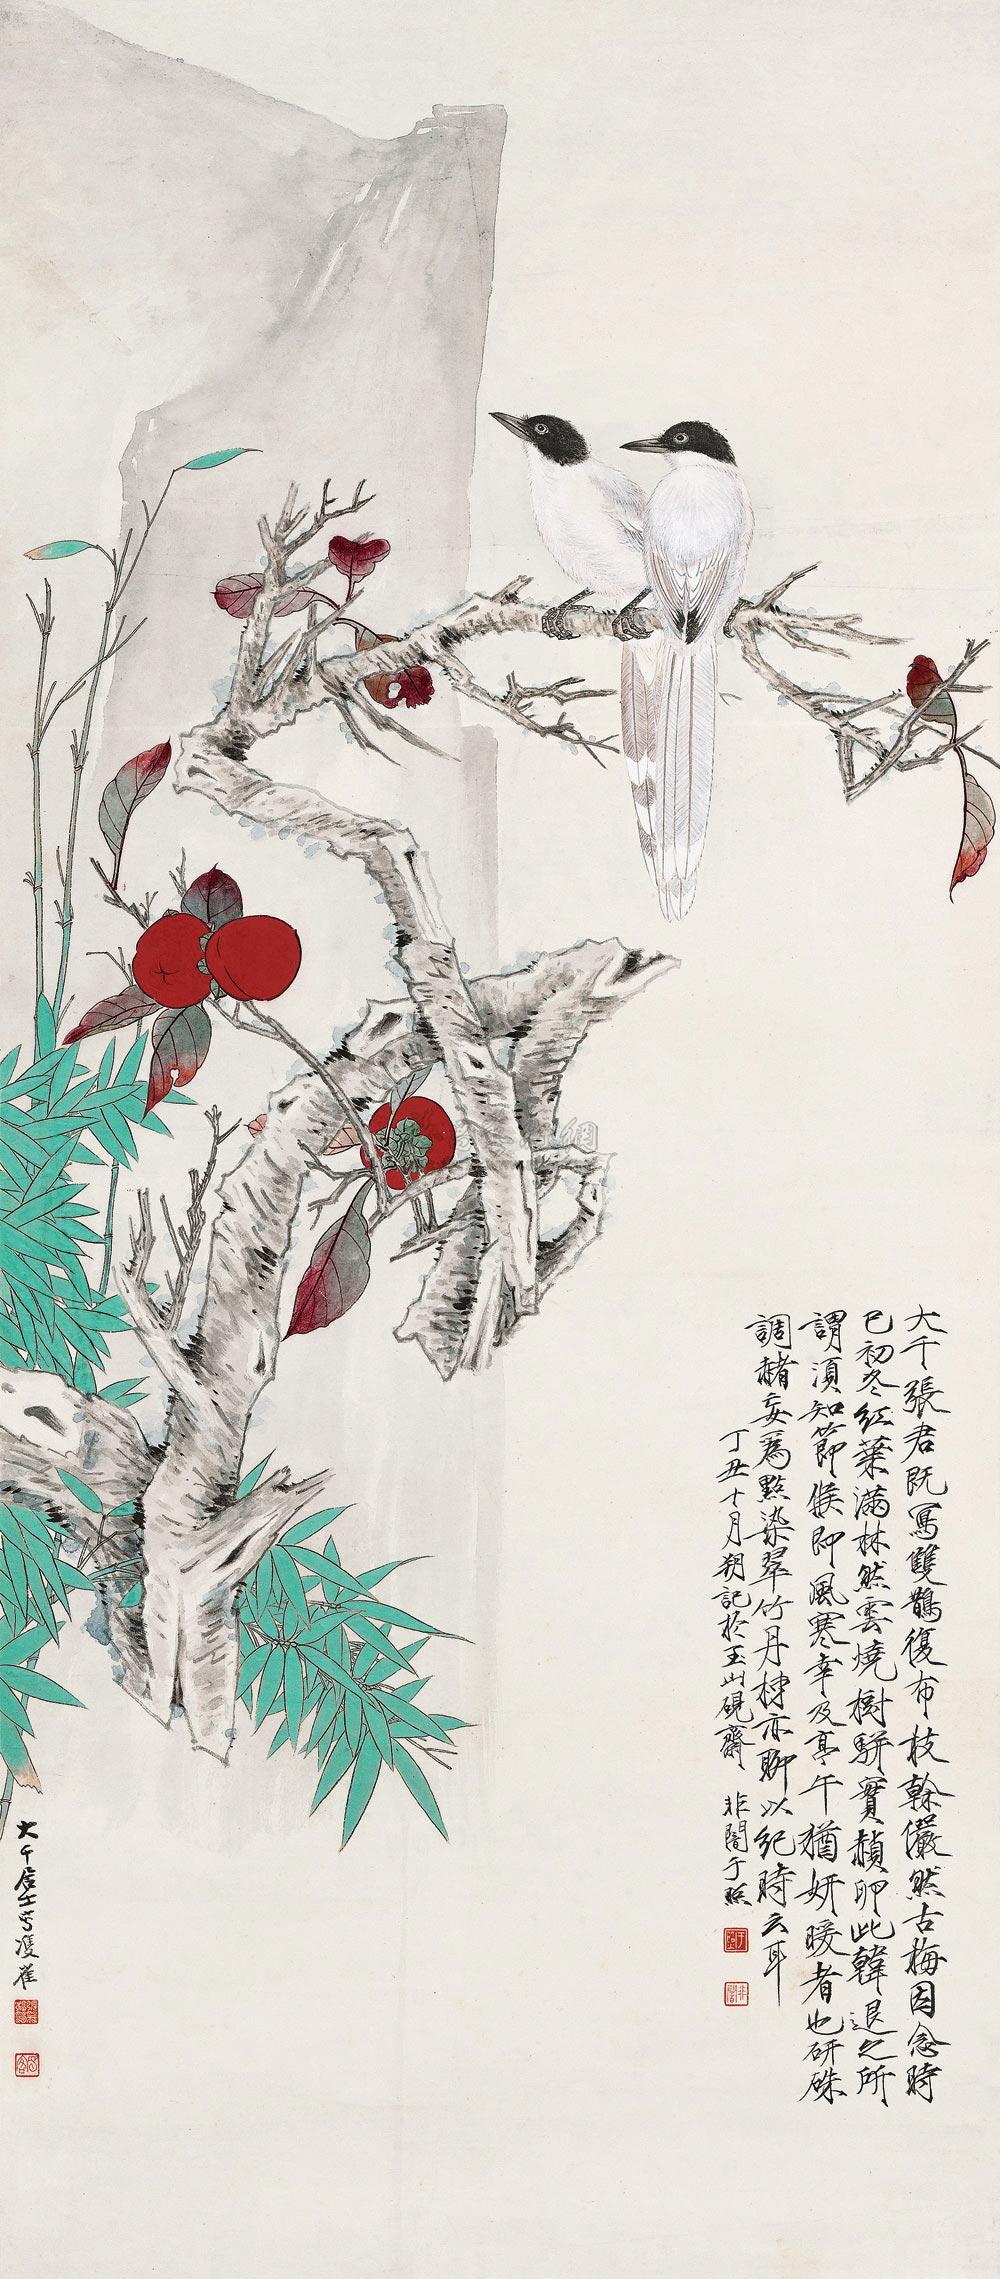 大千張君既寫雙鵲復布枝榦儼然古梅因念時
已初冬紅葉滿林然雲燒樹騈實赬卵此韓退之所
謂須知節候即風寒幸及亭午猶妍暖者也研硃
調赭妄為點染翠竹丹柿亦聊以紀時云耳
丁丑十月朔記於玉山硯齋 非闇于照
大千居士寫雙雀